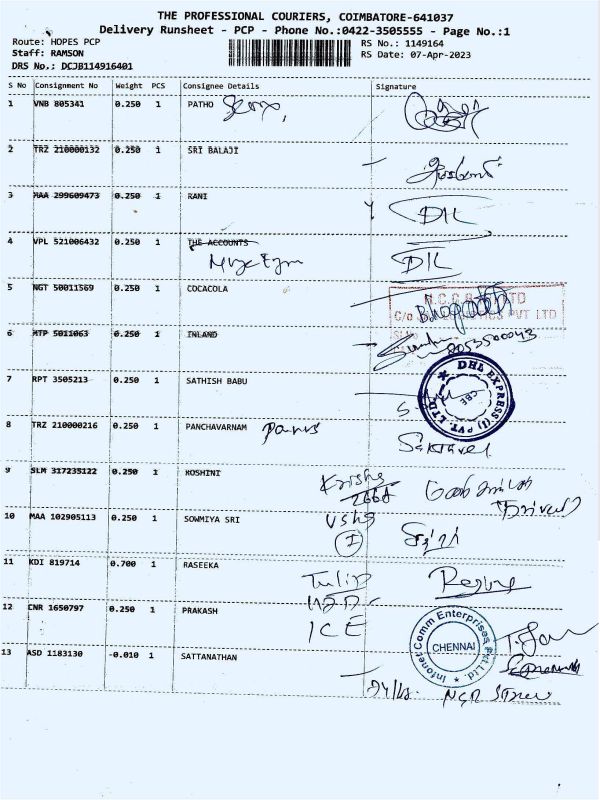 THE PROFESSIONAL COURIERS, COIMBATORE-641037
Delivery Runsheet - PCP - Phone No.:0422-3505555 - Page No.:1
Route: HOPES PCP
Staff: RAMSON
DRS No.: DCJB114916401
RS No.: 1149164
RS Date: 07-Apr-2023
S No Consignment No Weight PCS Consignee Details Signature
1 VNB 805341 0.250 1 PATHO
2 TRZ 210000132 0.250 1 SRI BALAJI
3 MAA 299609473 0.250 1 RANI DIL
4 VPL 521006432 0.250 1 THE ACCOUNTS DIL
5 NGT 50011569 0.250 1 COCACOLA
6 MTP 5011063 0.250 1 INLAND
7 RPT 3505213 0.250 1 SATHISH BABU
DHL EXPRESS (I) PVT. LTD.
CBE
8 TRZ 210000216 0.250 1 PANCHAVARNAM
Sakthivel
9 SLM 317235122 0.250 1 KOSHINI
Krishg
2668
10 MAA 102905113 0.250 1 SOWMIYA SRI
Usha
I
11 KDI 819714 0.700 1 RASEEKA
Tulip
12 CNR 1650797 0.250 1 PRAKASH
ICE
Infonet Comm Enterprises Pvt.Ltd.
CHENNAI
13 ASD 1183130 -0.010 1 SATTANATHAN